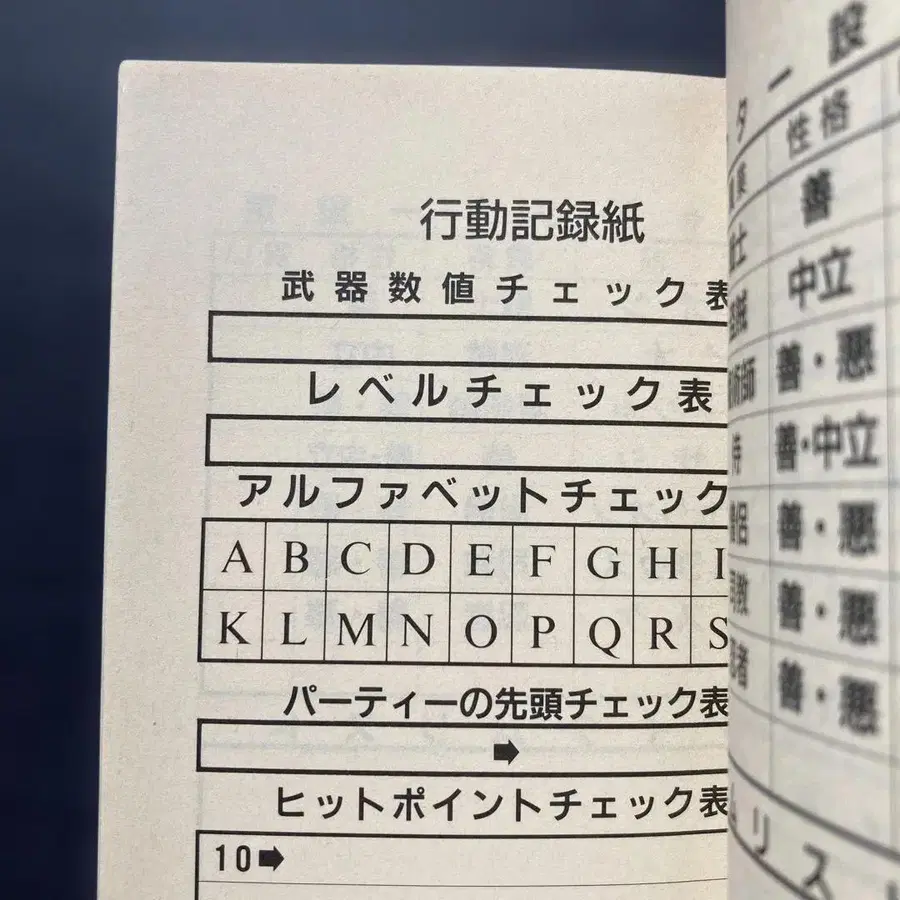 行動記録紙
武器数値チェック表
レベルチェック表
アルファベットチェック
A B C D E F G H I
K L M N O P Q R S
パーティーの先頭チェック表
➡
ヒットポイントチェック表
10➡
ター設
性格
善
士 中立
善・悪
術師 善・中立
侍 善・悪
僧侶 善・悪
司教 善・悪
者
ムリスト